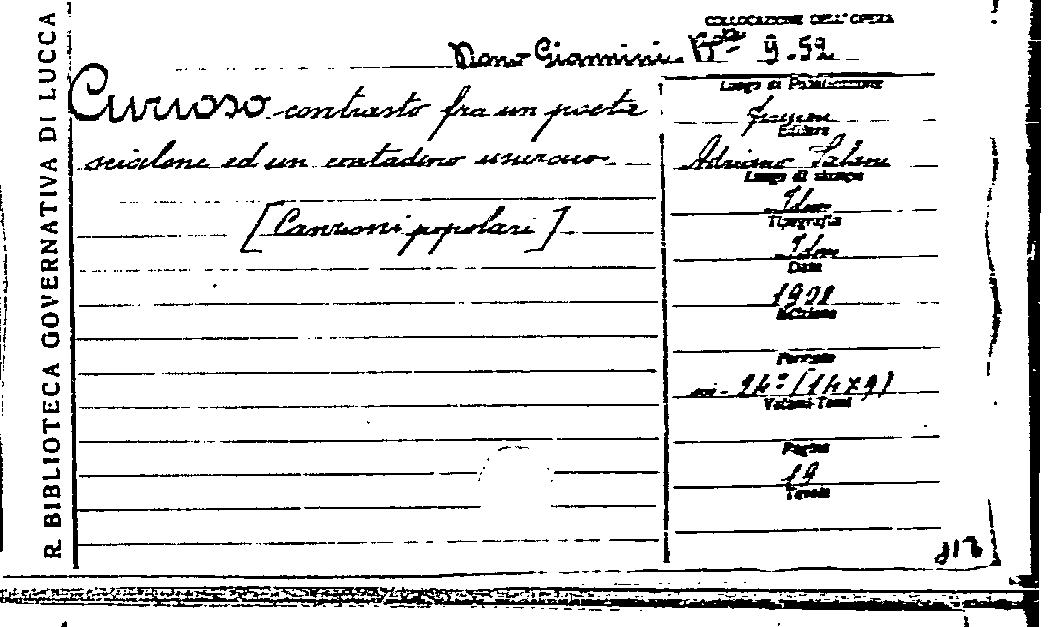 R. BIBLIOTECA GOVERNATIVA DI LUCCA
COLLOCAZIONE DELL'OPERA
Dono Giannini 9.52
Curioso contrasto fra un poeta
ed un contadino
[Canzoni popolari]
Luogo di Pubblicazione
Firenze
Editore
Adriano Salani
Luogo di stampa
Idem
Tipografia
Idem
Data
1901
Edizione
Formato
in-24° (14x9)
Volumi-Tomi
Pagine
19
Tavole